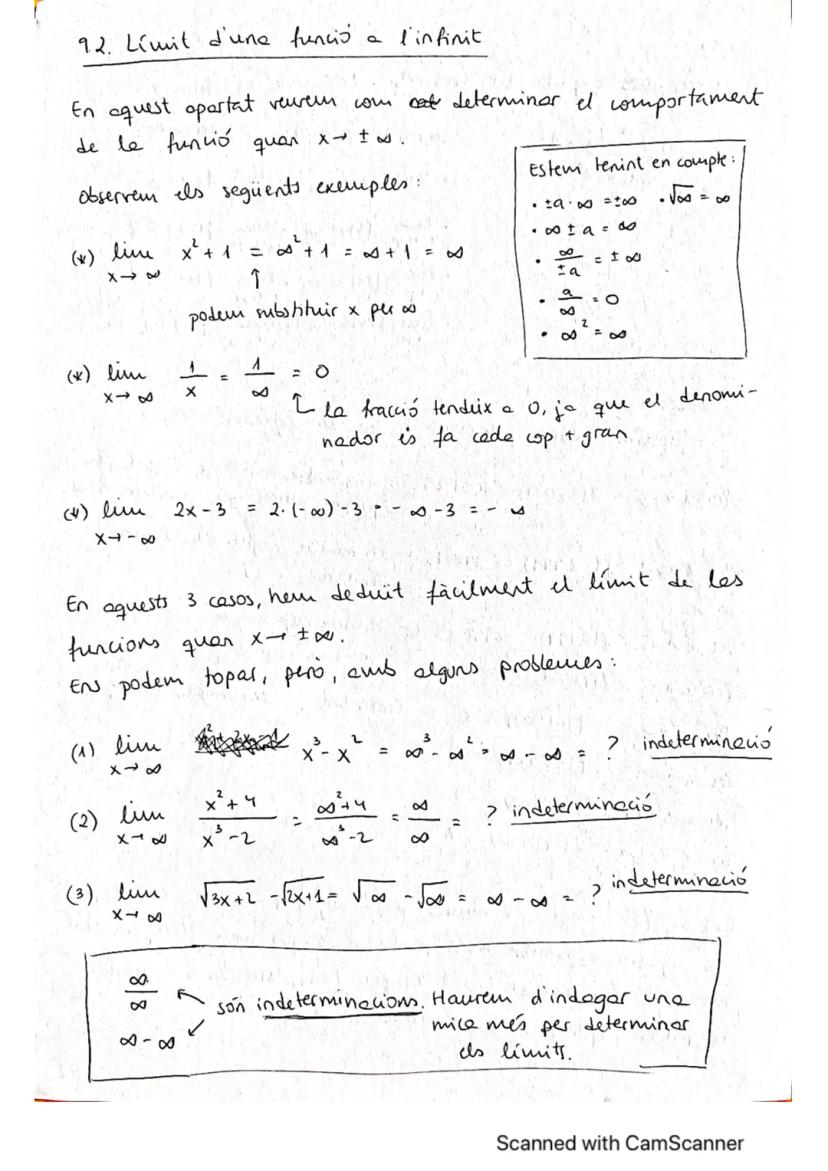 9.2. Límit d'una funció a l'infinit
En aquest apartat veurem com determinar el comportament
de la funció quan x → ± ∞.
Observem els següents exemples:
Estem tenint en compte:
• ±a · ∞ = ±∞ • √∞ = ∞
• ∞ ± a = ∞
• ∞/±a = ± ∞
• a/∞ = 0
• ∞² = ∞
(*) lim x→∞ x² + 1 = ∞² + 1 = ∞ + 1 = ∞
↑
podem substituir x per ∞
(*) lim x→∞ 1/x = 1/∞ = 0
la fracció tendeix a 0, ja que el denomi-
nador es fa cada cop + gran
(*) lim x→-∞ 2x - 3 = 2·(-∞) - 3 = - ∞ - 3 = - ∞
En aquests 3 casos, hem deduït fàcilment el límit de les
funcions quan x → ± ∞.
Ens podem topar, però, amb alguns problemes:
(1) lim x→∞ x³ - x² = ∞³ - ∞² = ∞ - ∞ = ? indeterminació
(2) lim x→∞ (x² + 4)/(x³ - 2) = (∞² + 4)/(∞³ - 2) = ∞/∞ = ? indeterminació
(3) lim x→∞ √3x+2 - √2x+1 = √∞ - √∞ = ∞ - ∞ = ? indeterminació
∞/∞
∞ - ∞
són indeterminacions. Haurem d'indagar una
mica més per determinar
els límits.
Scanned with CamScanner